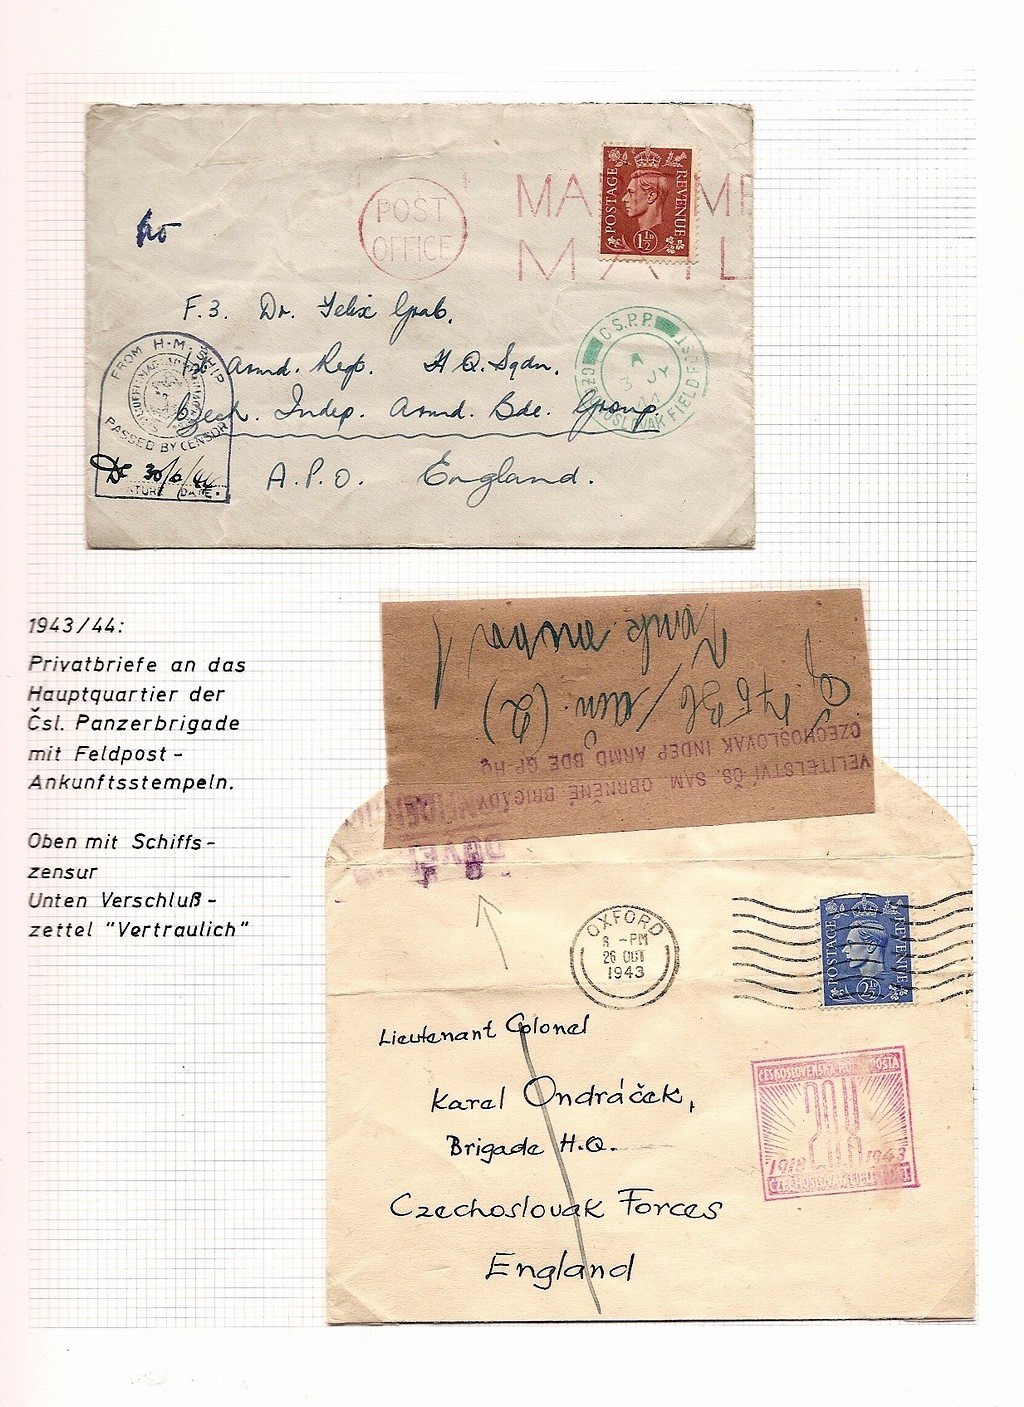 POST
OFFICE
MAIL
POSTAGE
REVENUE
1½D
F.3. Dr. Felix Grab,
1st Armd. Regt. H.Q. Sqdn.
Czech. Indep. Armd. Bde. Group.
A.P.O. England.
FROM H.M. SHIP
PASSED BY CENSOR
30/6/44
DATE.
Č.S.P.P.
FIELD POST
1943/44:
Privatbriefe an das
Hauptquartier der
Čsl. Panzerbrigade
mit Feldpost-
Ankunftsstempeln.
Oben mit Schiffs-
zensur
Unten Verschluß-
zettel "Vertraulich"
VELITELSTVÍ ČS. SAM. OBRNĚNÉ BRIGÁDY
CZECHOSLOVAK INDEP ARMD BDE GP-HQ
OXFORD
-PM
26 OCT
1943
POSTAGE
REVENUE
2½D
Lieutenant Colonel
Karel Ondráček,
Brigade H.Q.
Czechoslovak Forces
England
ČESKOSLOVENSKÁ POLNÍ POŠTA
1918 1943